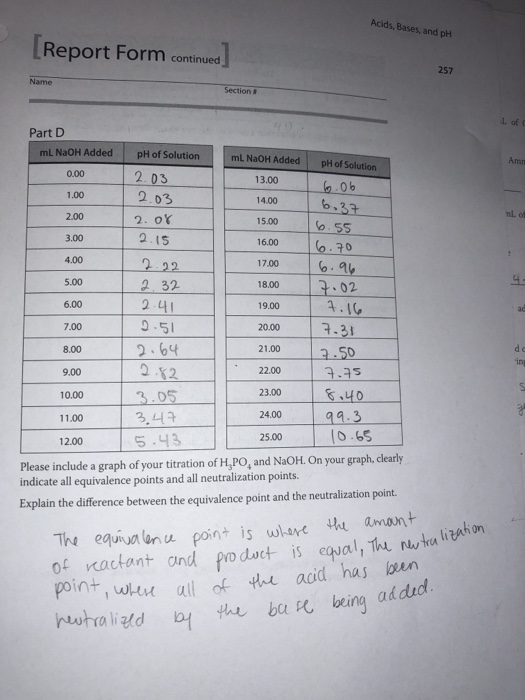 Acids, Bases, and pH
[Report Form continued]
257
Name
Section #
Part D
mL NaOH Added pH of Solution
0.00 2.03
1.00 2.03
2.00 2.08
3.00 2.15
4.00 2.22
5.00 2.32
6.00 2.41
7.00 2.51
8.00 2.64
9.00 2.82
10.00 3.05
11.00 3.47
12.00 5.43
mL NaOH Added pH of Solution
13.00 6.06
14.00 6.37
15.00 6.55
16.00 6.70
17.00 6.96
18.00 7.02
19.00 7.16
20.00 7.31
21.00 7.50
22.00 7.75
23.00 8.40
24.00 99.3
25.00 10.65
Please include a graph of your titration of H₃PO₄ and NaOH. On your graph, clearly
indicate all equivalence points and all neutralization points.
Explain the difference between the equivalence point and the neutralization point.
The equivalence point is where the amount
of reactant and product is equal, The neutralization
point, where all of the acid has been
neutralized by the base being added.